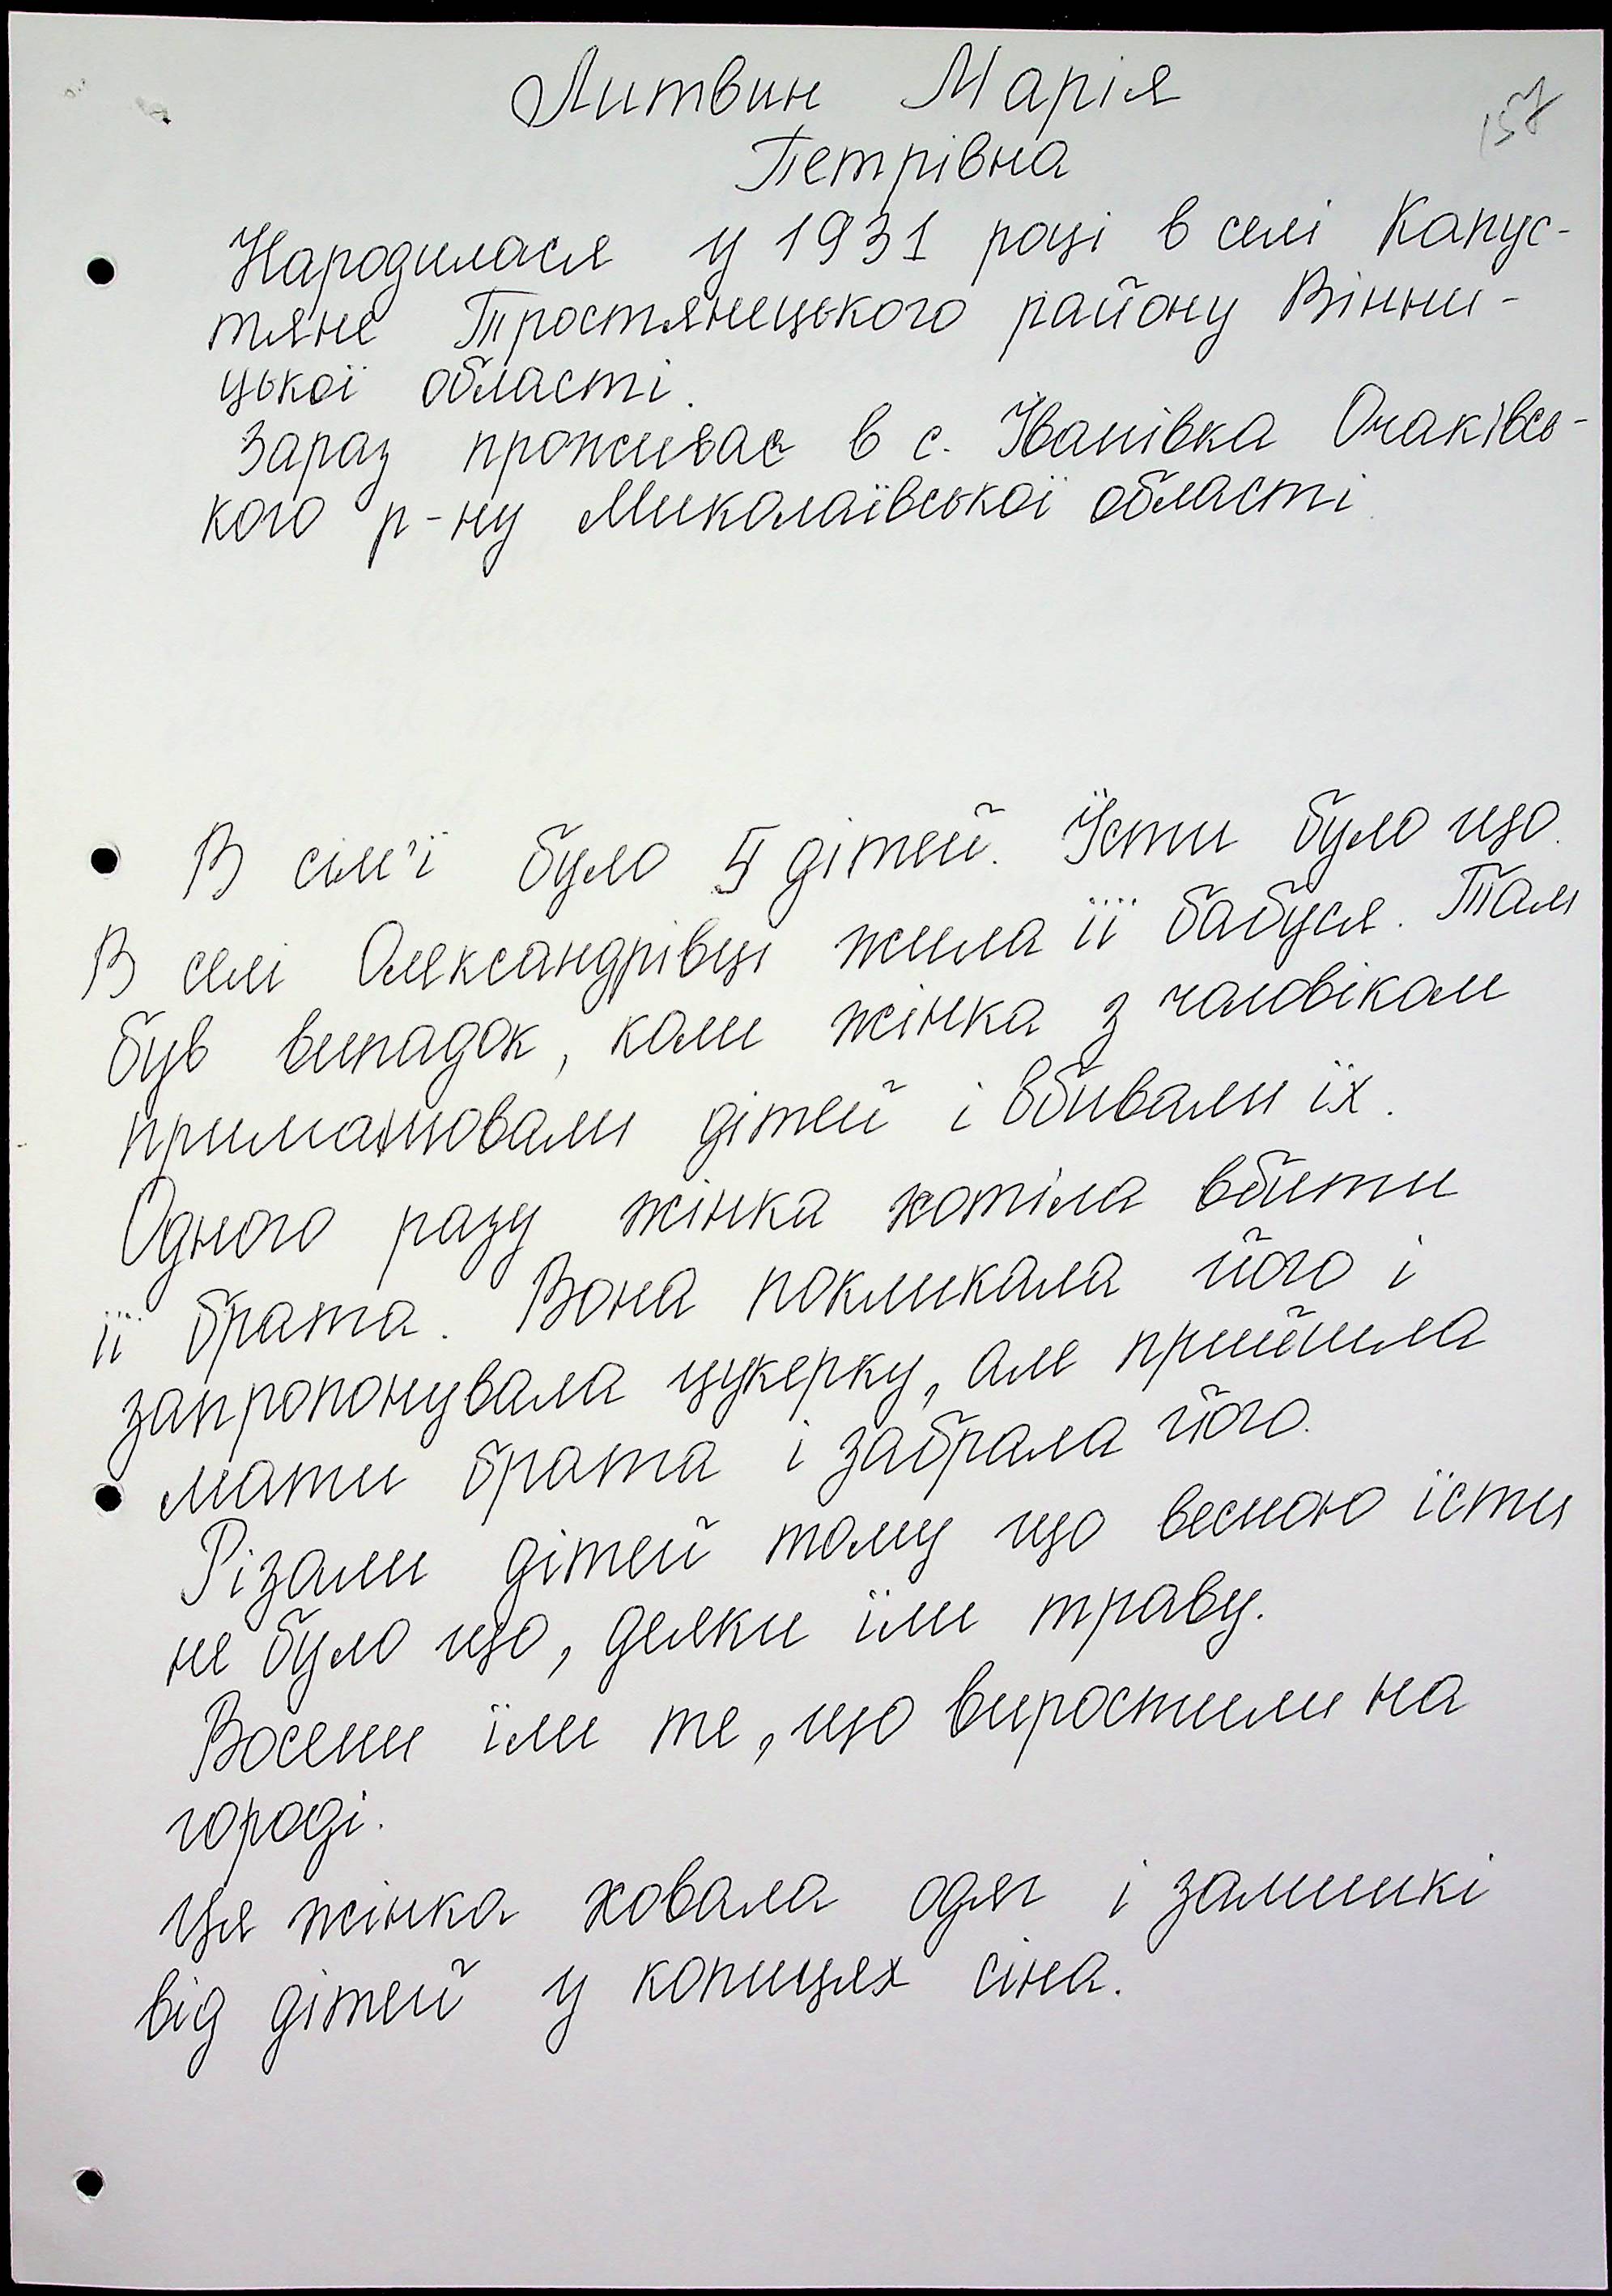 Литвин Марія
157
Петрівна
Народилася у 1931 році в селі Капус-
тяне Тростянецького району Вінни-
цької області.
Зараз проживає в с. Іванівка Очаківсь-
кого р-ну Миколаївської області.
В сім'ї було 5 дітей. Їсти було що.
В селі Олександрівці жила її бабуся. Там
був випадок, коли жінка з чоловіком
приманювали дітей і вбивали їх.
Одного разу жінка хотіла вбити
її брата. Вона покликала його і
запропонувала цукерку, але прийшла
мати брата і забрала його.
Різали дітей тому що весною їсти
не було що, деяки їли траву.
Восени їли те, що виростили на
городі.
Ця жінка ховала одяг і залишкі
від дітей у копицях сіна.